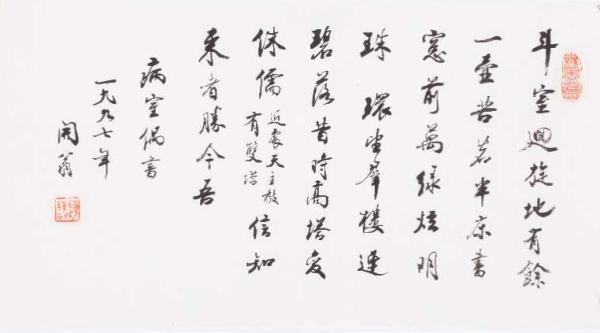 斗室迴旋地有餘
一壺苦茗半床書
窓前萬緑炫明
珠環望羣樓連
碧落昔時高塔变
侏儒
近處天主教
有雙塔
信知
来者勝今吾
病室偶書
一九九七年
翁